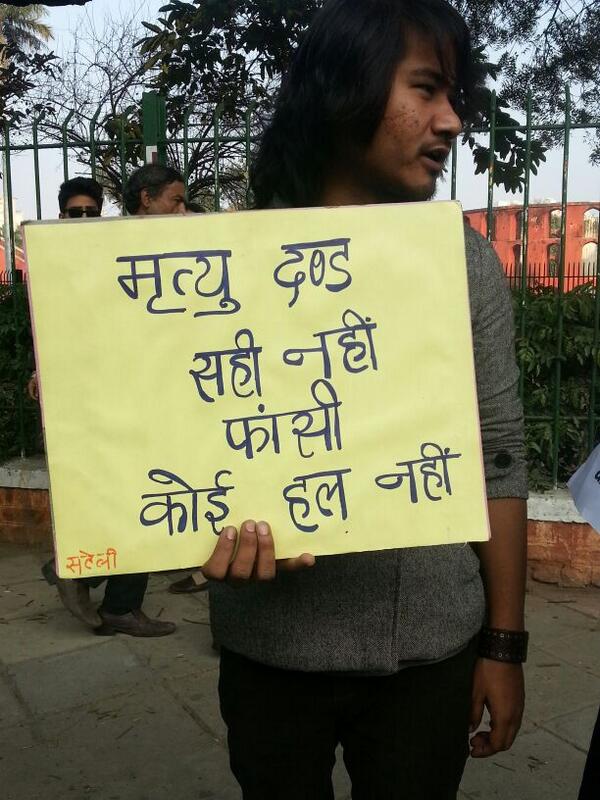 मृत्यु दण्ड
सही नहीं
फांसी
कोई हल नहीं
सहेली